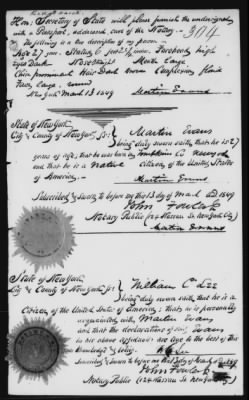 Hon. Secretary of State will please furnish the undersigned
with a Passport, addressed, care of the Notary - 304
The following is a true description of my person -
Age 27 years. Stature 5 feet inches. Forehead high
Eyes Dark Nose Mouth Large
Chin prominent Hair Dark Complexion florid
Face, Large.
New York March 13 1849 Martin Evans
State of New York
City & County of New York } ss. Martin Evans
being duly sworn saith, that he is 27
years of age, that he was born in
and that he is a Native Citizen of the United States
of America. Martin Evans
Subscribed & Sworn to before me this 13 day of March 1849
John Fowler Jr
Notary Public (24 Nassau St. New York City)
Martin Evans
State of New York
City & County of New York } ss. William C Lee
being duly sworn saith, that he is a
Citizen of the United States of America; that he is personally
acquainted with Martin Evans
and that the declarations of said Evans
in his above affidavit are true to the best of his
knowledge & belief. W C Lee
Subscribed & Sworn to before me this 13 day of March 1849
John Fowler Jr
Notary Public (24 Nassau St. New York)